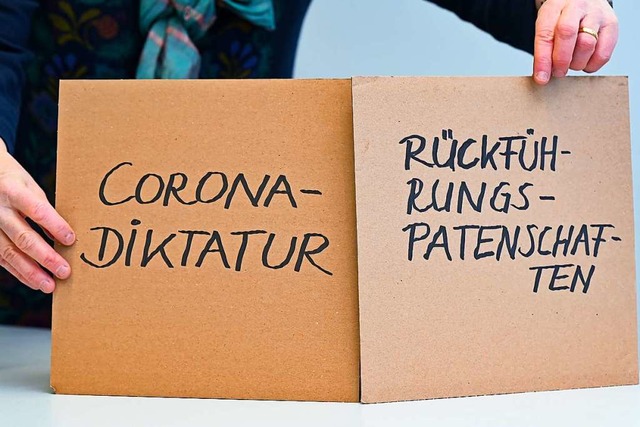 CORONA-
DIKTATUR
RÜCKFÜH-
RUNGS-
PATENSCHAF-
TEN